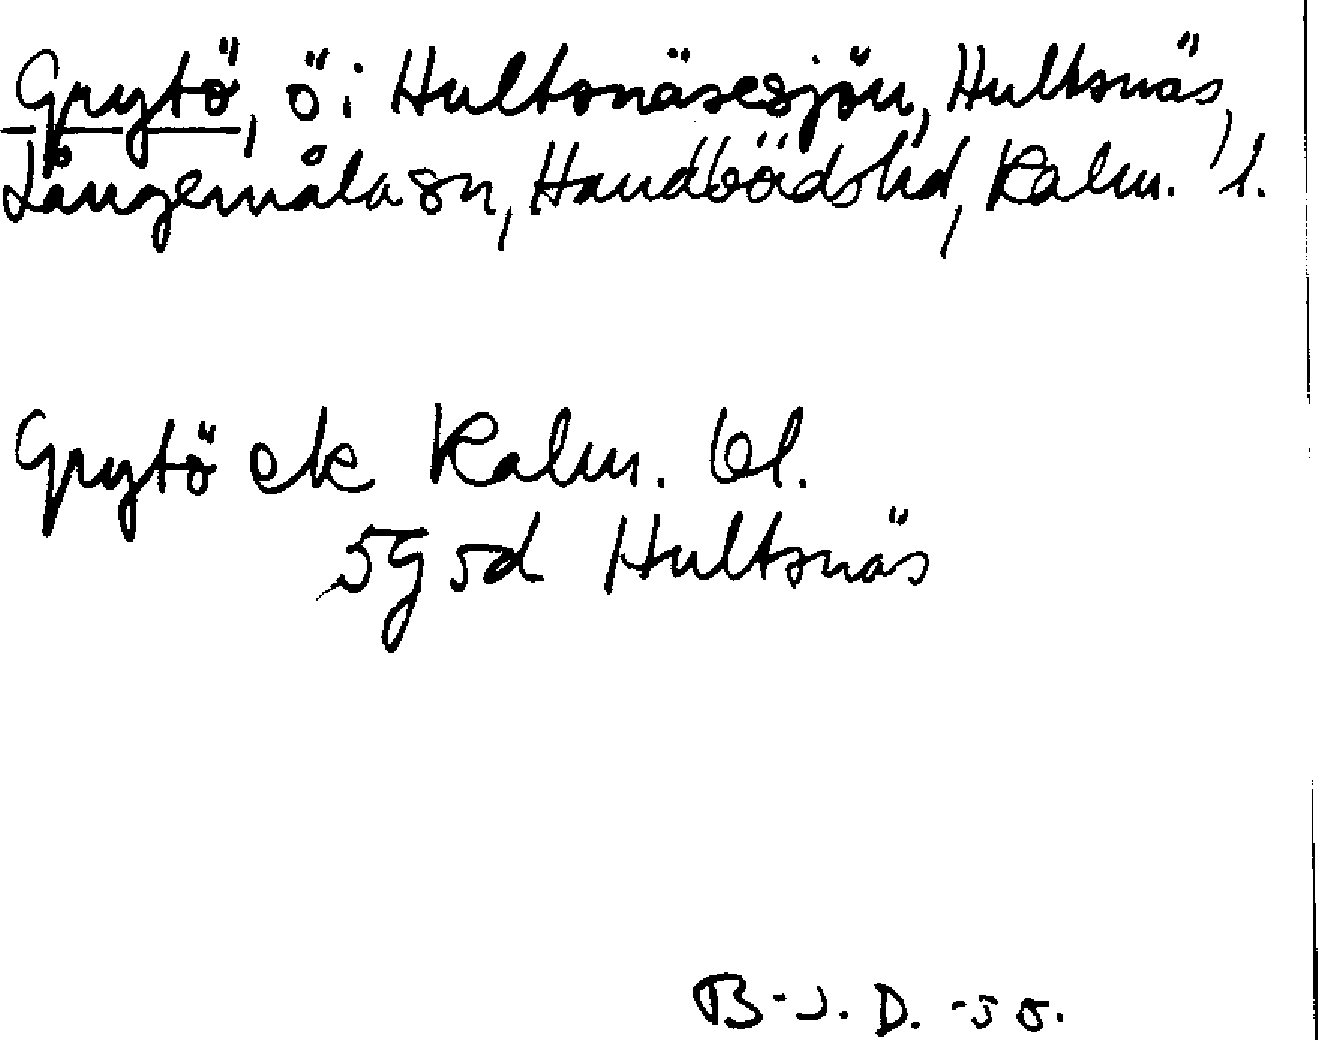 Grytö, ö i Hultsnäsesjön, Hultsnäs,
Långemåla sn, Handbörds hd, Kalm. l.
Grytö ek Kalm. bl.
5g 5d Hultsnäs
B-J. D. -50.